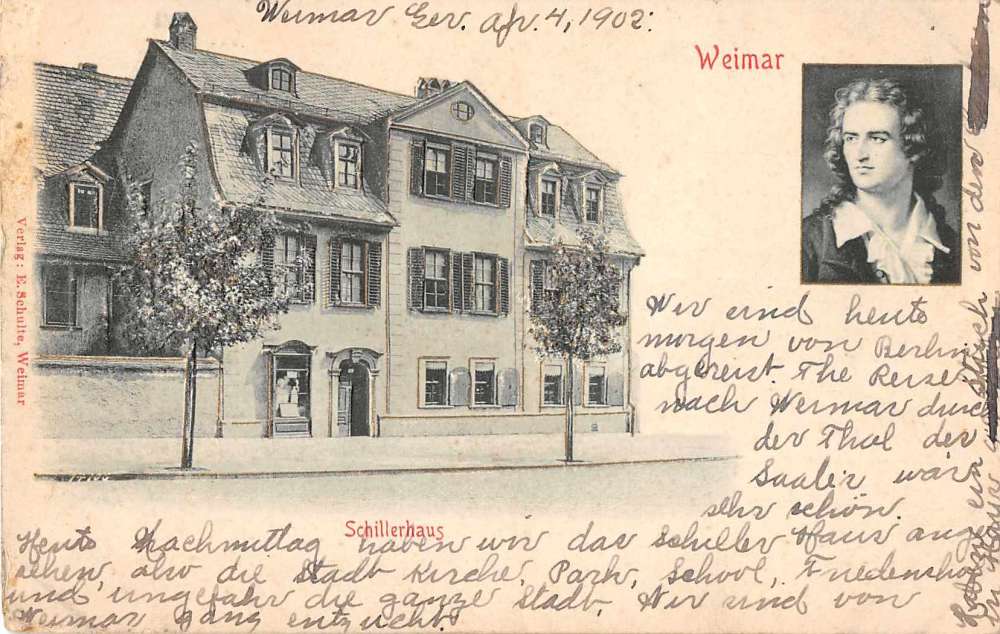 Weimar Ger. Apr. 4, 1902.
Weimar
Verlag: E. Schulte, Weimar
Wir sind heute
morgen von Berlin
abgereist. The Reise
nach Weimar durch
der Thal der
Saale wär
sehr schön.
Schillerhaus
Heute Nachmittag haben wir das Schiller Haus ange
sehen, also die Stadt Kirche, Park, School,
und ungefähr die ganze Stadt. Wir sind von
Weimar ganz entzückt.